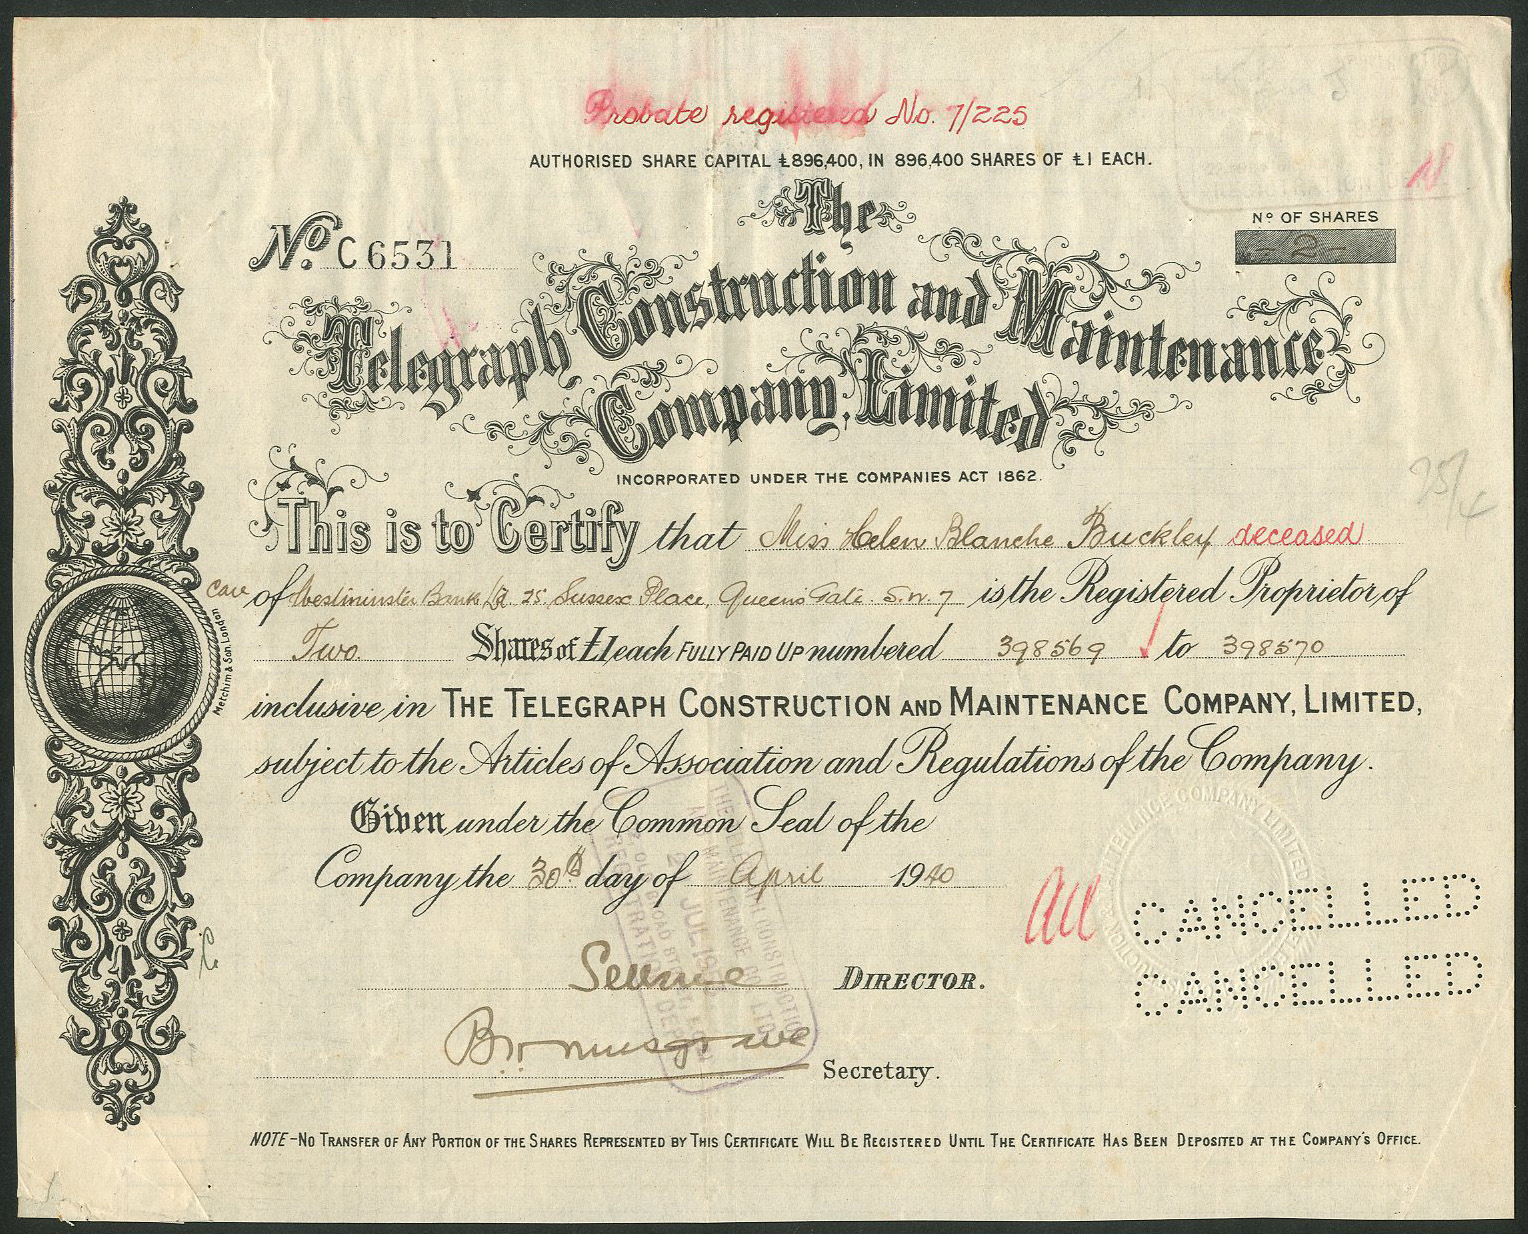 Probate registered No. 7/225
AUTHORISED SHARE CAPITAL £896,400, IN 896,400 SHARES OF £1 EACH.
The
No. C 6531
Nº OF SHARES
- 2 -
Telegraph Construction and Maintenance
Company, Limited
INCORPORATED UNDER THE COMPANIES ACT 1862.
This is to Certify that Miss Helen Blanche Buckley deceased
care of Westminster Bank Ld. 25 Sussex Place, Queens Gate. S.W. 7 is the Registered Proprietor of
Two Shares of £1 each FULLY PAID UP numbered 398569 to 398570
inclusive in THE TELEGRAPH CONSTRUCTION AND MAINTENANCE COMPANY, LIMITED,
subject to the Articles of Association and Regulations of the Company.
Given under the Common Seal of the
Company, the 30th day of April 1940
All
CANCELLED
CANCELLED
DIRECTOR.
B. Musgrave
Secretary.
NOTE – NO TRANSFER OF ANY PORTION OF THE SHARES REPRESENTED BY THIS CERTIFICATE WILL BE REGISTERED UNTIL THE CERTIFICATE HAS BEEN DEPOSITED AT THE COMPANY'S OFFICE.
Metchim & Son. London